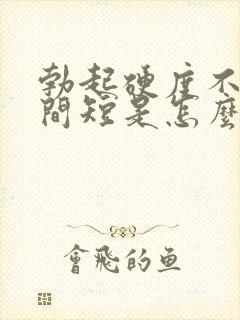 勃起硬度不
間短是怎麼
會飛的魚